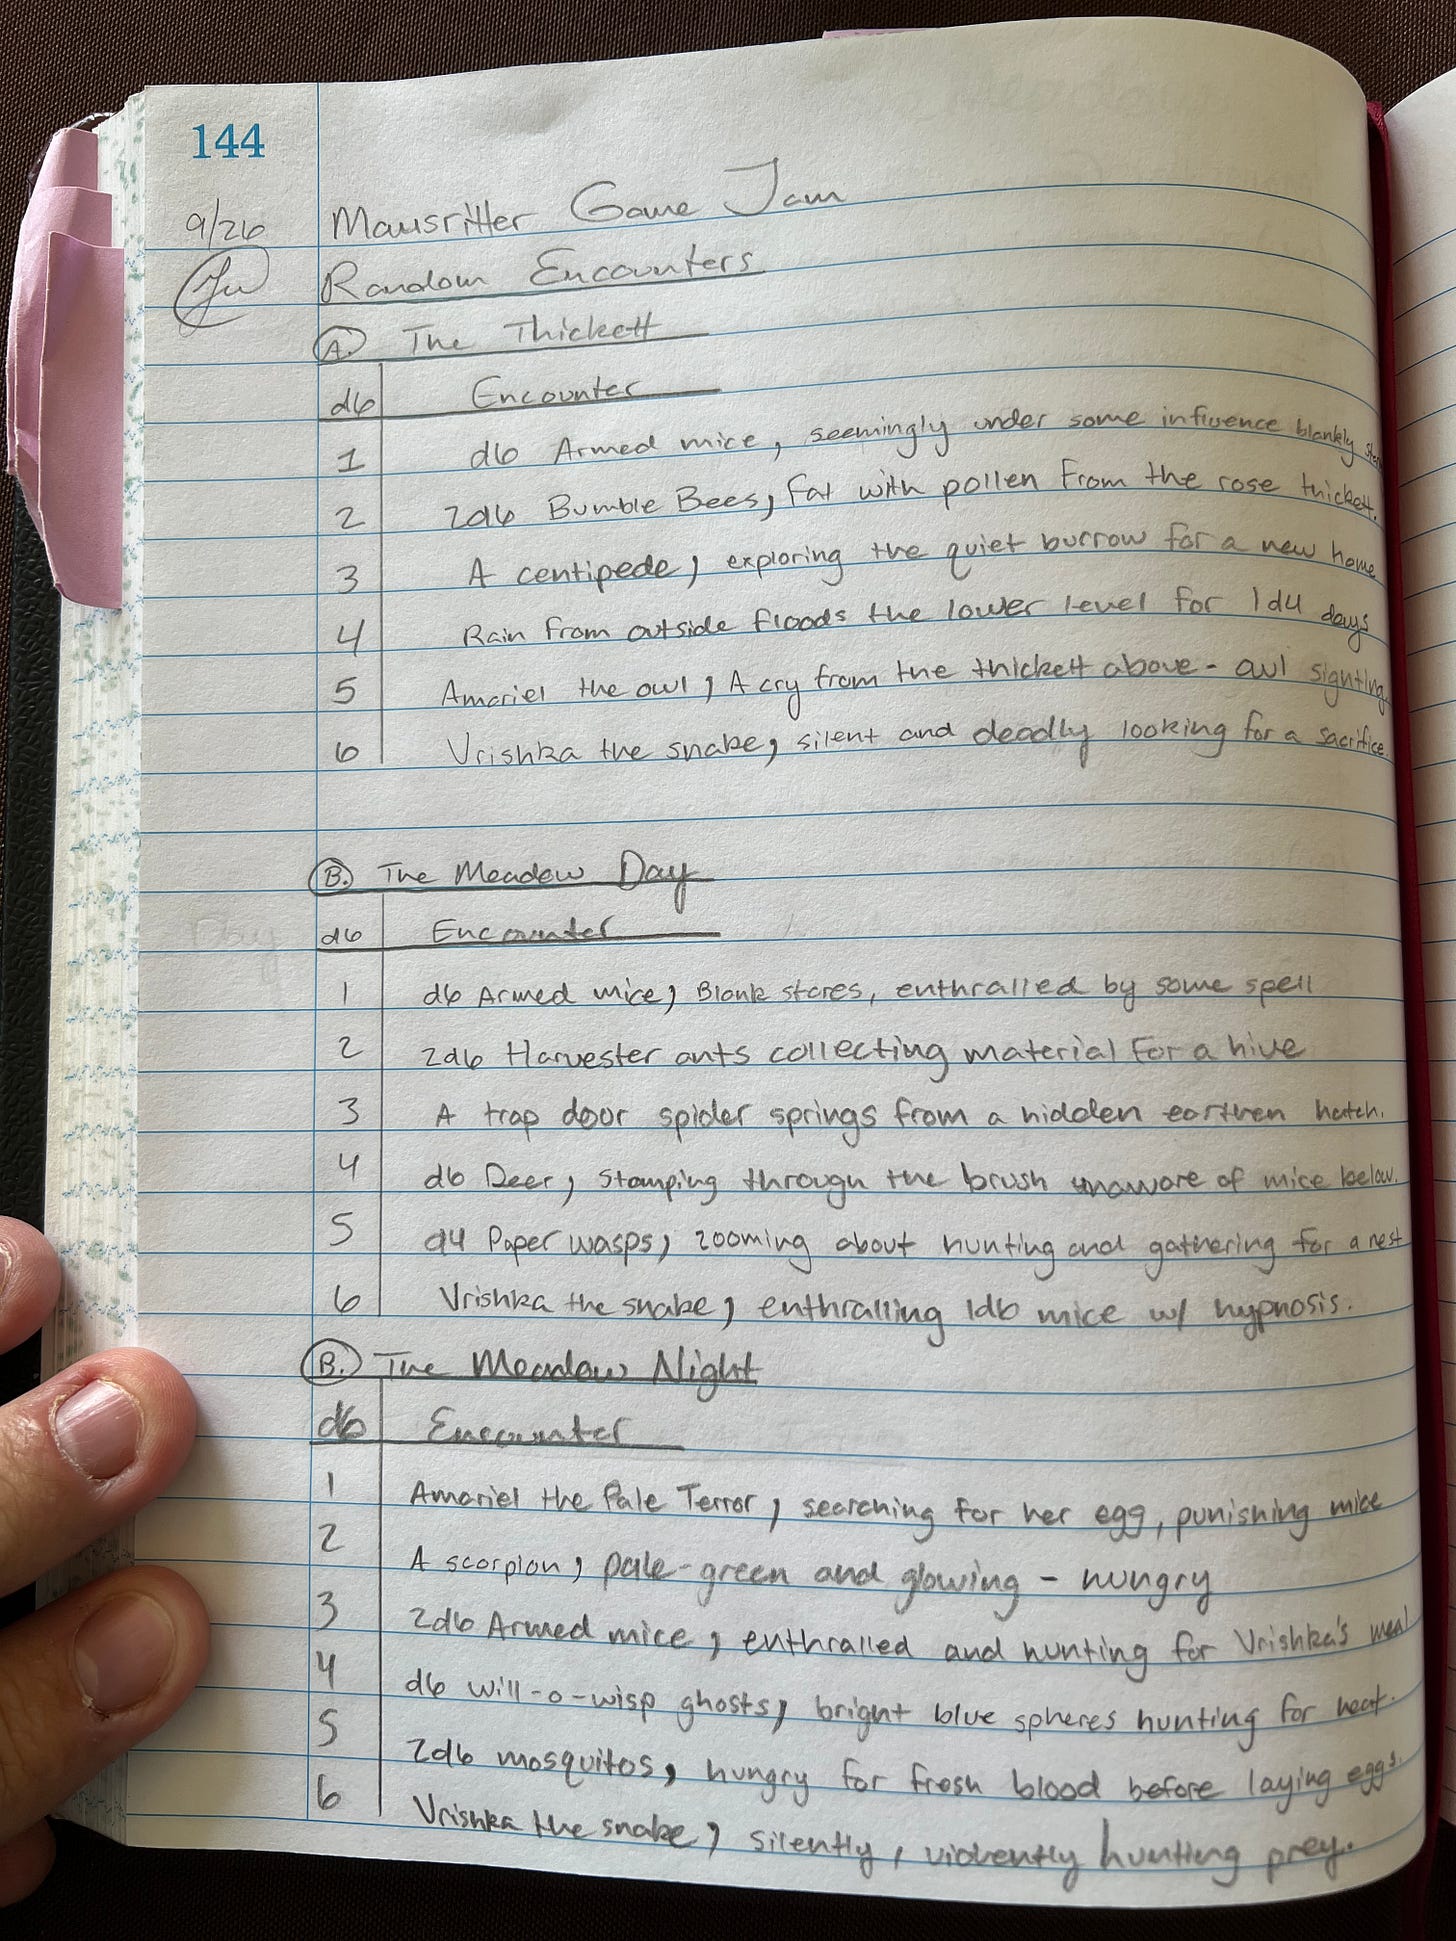 144
9/26 Mausritter Game Jam
Random Encounters
A. The Thickett
d6 Encounter
1 d6 Armed mice, seemingly under some influence blankly
2 2d6 Bumble Bees, fat with pollen from the rose thickett.
3 A centipede, exploring the quiet burrow for a new home
4 Rain from outside floods the lower level for 1d4 days
5 Amariel the owl, A cry from the thickett above - owl sighting
6 Vrishka the snake, silent and deadly looking for a sacrifice.
B. The Meadow Day
d6 Encounter
1 d6 Armed mice, Blank stares, enthralled by some spell
2 2d6 Harvester ants collecting material for a hive
3 A trap door spider springs from a hidden earthen hatch.
4 d6 Deer, Stomping through the brush unaware of mice below.
5 d4 Paper wasps, zooming about hunting and gathering for a nest
6 Vrishka the snake, enthralling 1d6 mice w/ hypnosis.
B. The Meadow Night
d6 Encounter
1 Amariel the Pale Terror, searching for her egg, punishing mice
2 A scorpion, pale-green and glowing - hungry
3 2d6 Armed mice, enthralled and hunting for Vrishka's meal
4 d6 will-o-wisp ghosts, bright blue spheres hunting for heat.
5 2d6 mosquitos, hungry for fresh blood before laying eggs.
6 Vrishka the snake, silently, violently hunting prey.